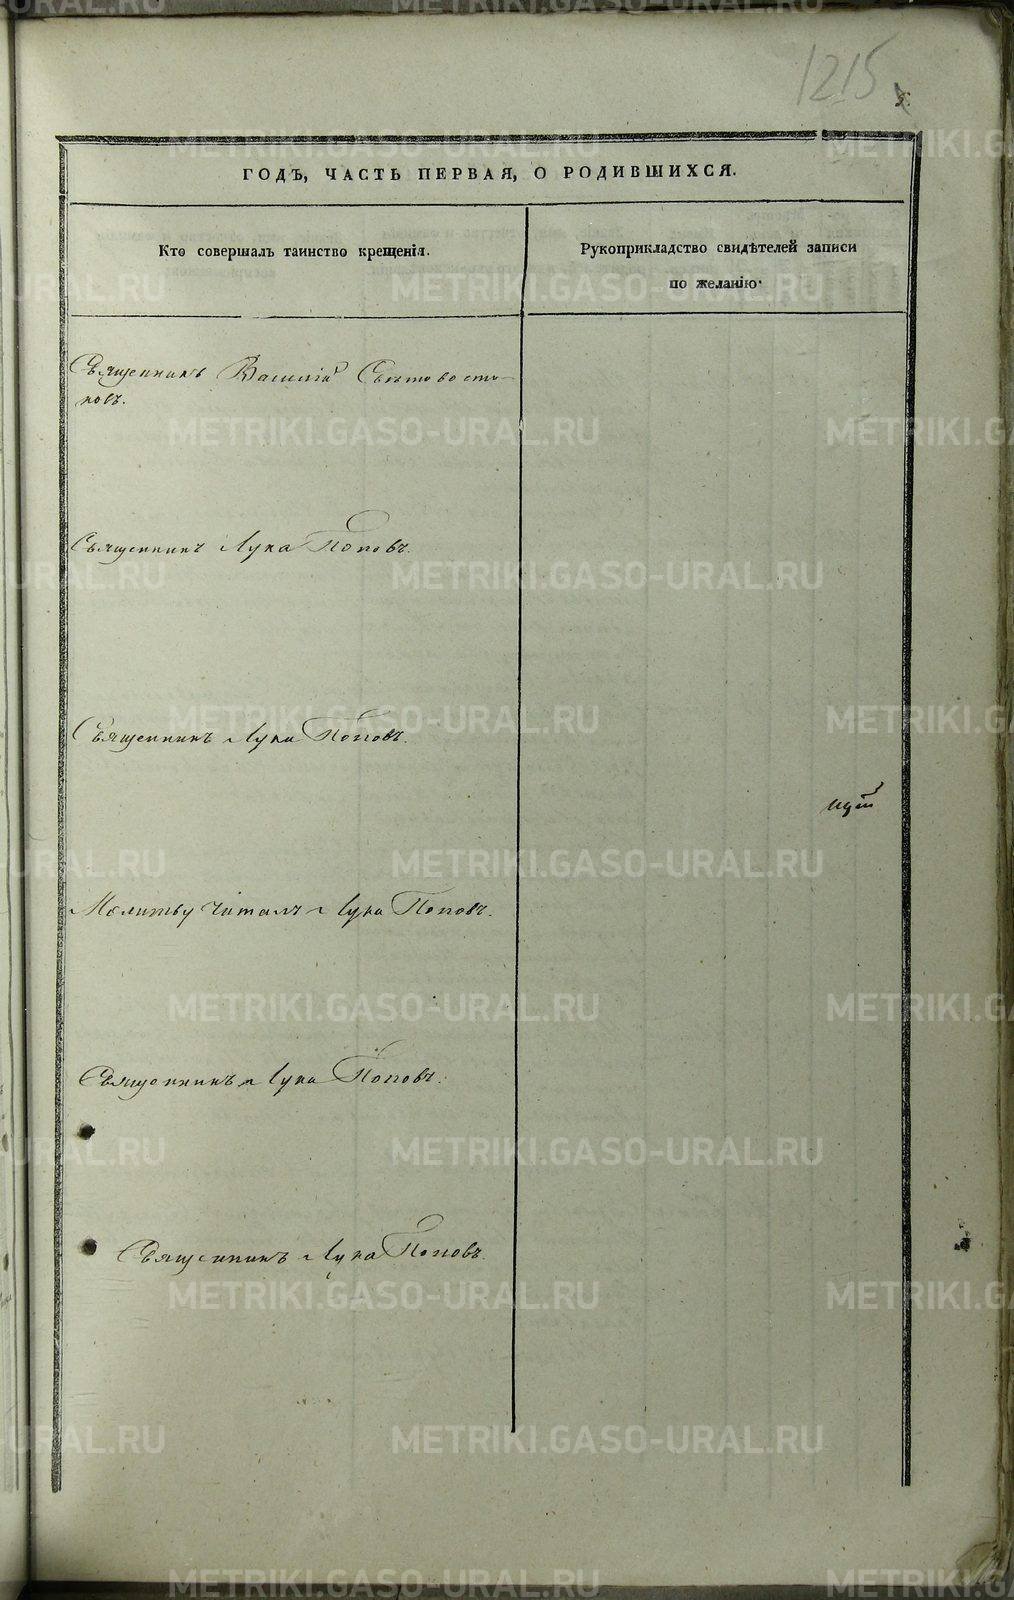 1215
5.
ГОДЪ, ЧАСТЬ ПЕРВАЯ, О РОДИВШИХСЯ.
Кто совершалъ таинство крещенія.
Рукоприкладство свидѣтелей записи
по желанію.
Священникъ Василій Свѣтовосто-
ковъ.
Священникъ Лука Поповъ.
Священникъ Лука Поповъ.
Молитву читалъ Лука Поповъ.
Священникъ Лука Поповъ.
Священникъ Лука Поповъ.
METRIKI.GASO-URAL.RU